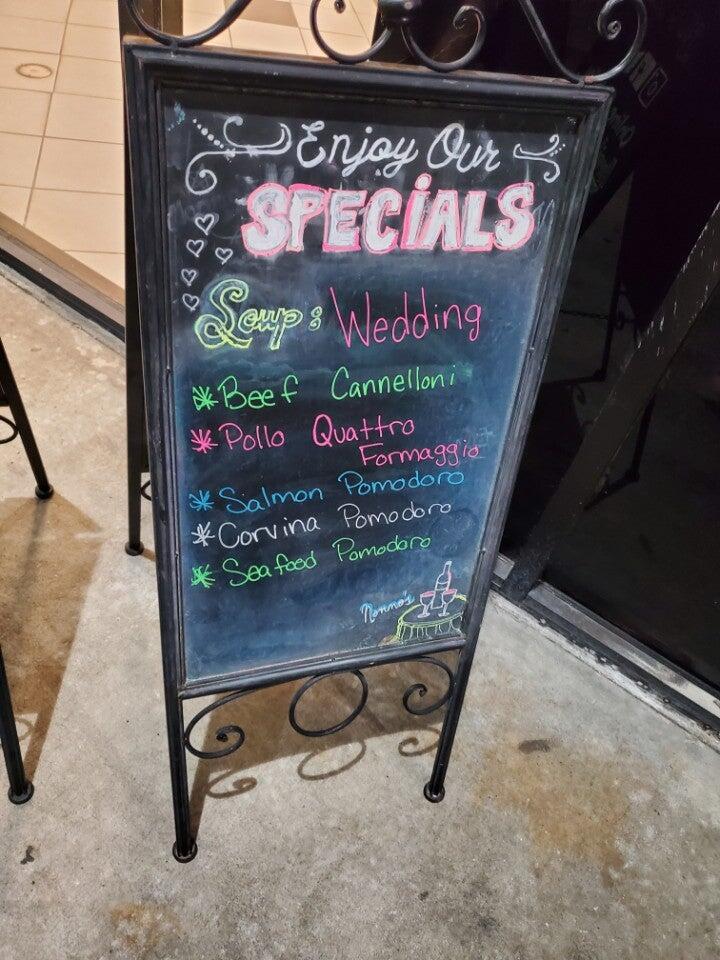 Enjoy Our
SPECiALS
Soup: Wedding
* Beef Cannelloni
* Pollo Quattro
Formaggio
* Salmon Pomodoro
* Corvina Pomodoro
* Seafood Pomodoro
Nonno's